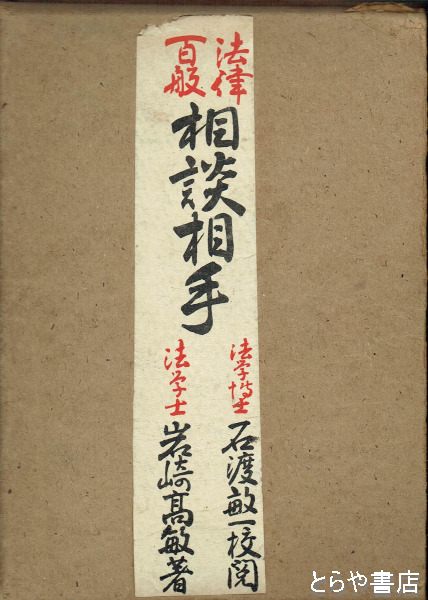 法律
百般
相談相手
法学博士
石渡敏一校閲
法学士
岩崎高敏著
とらや書店